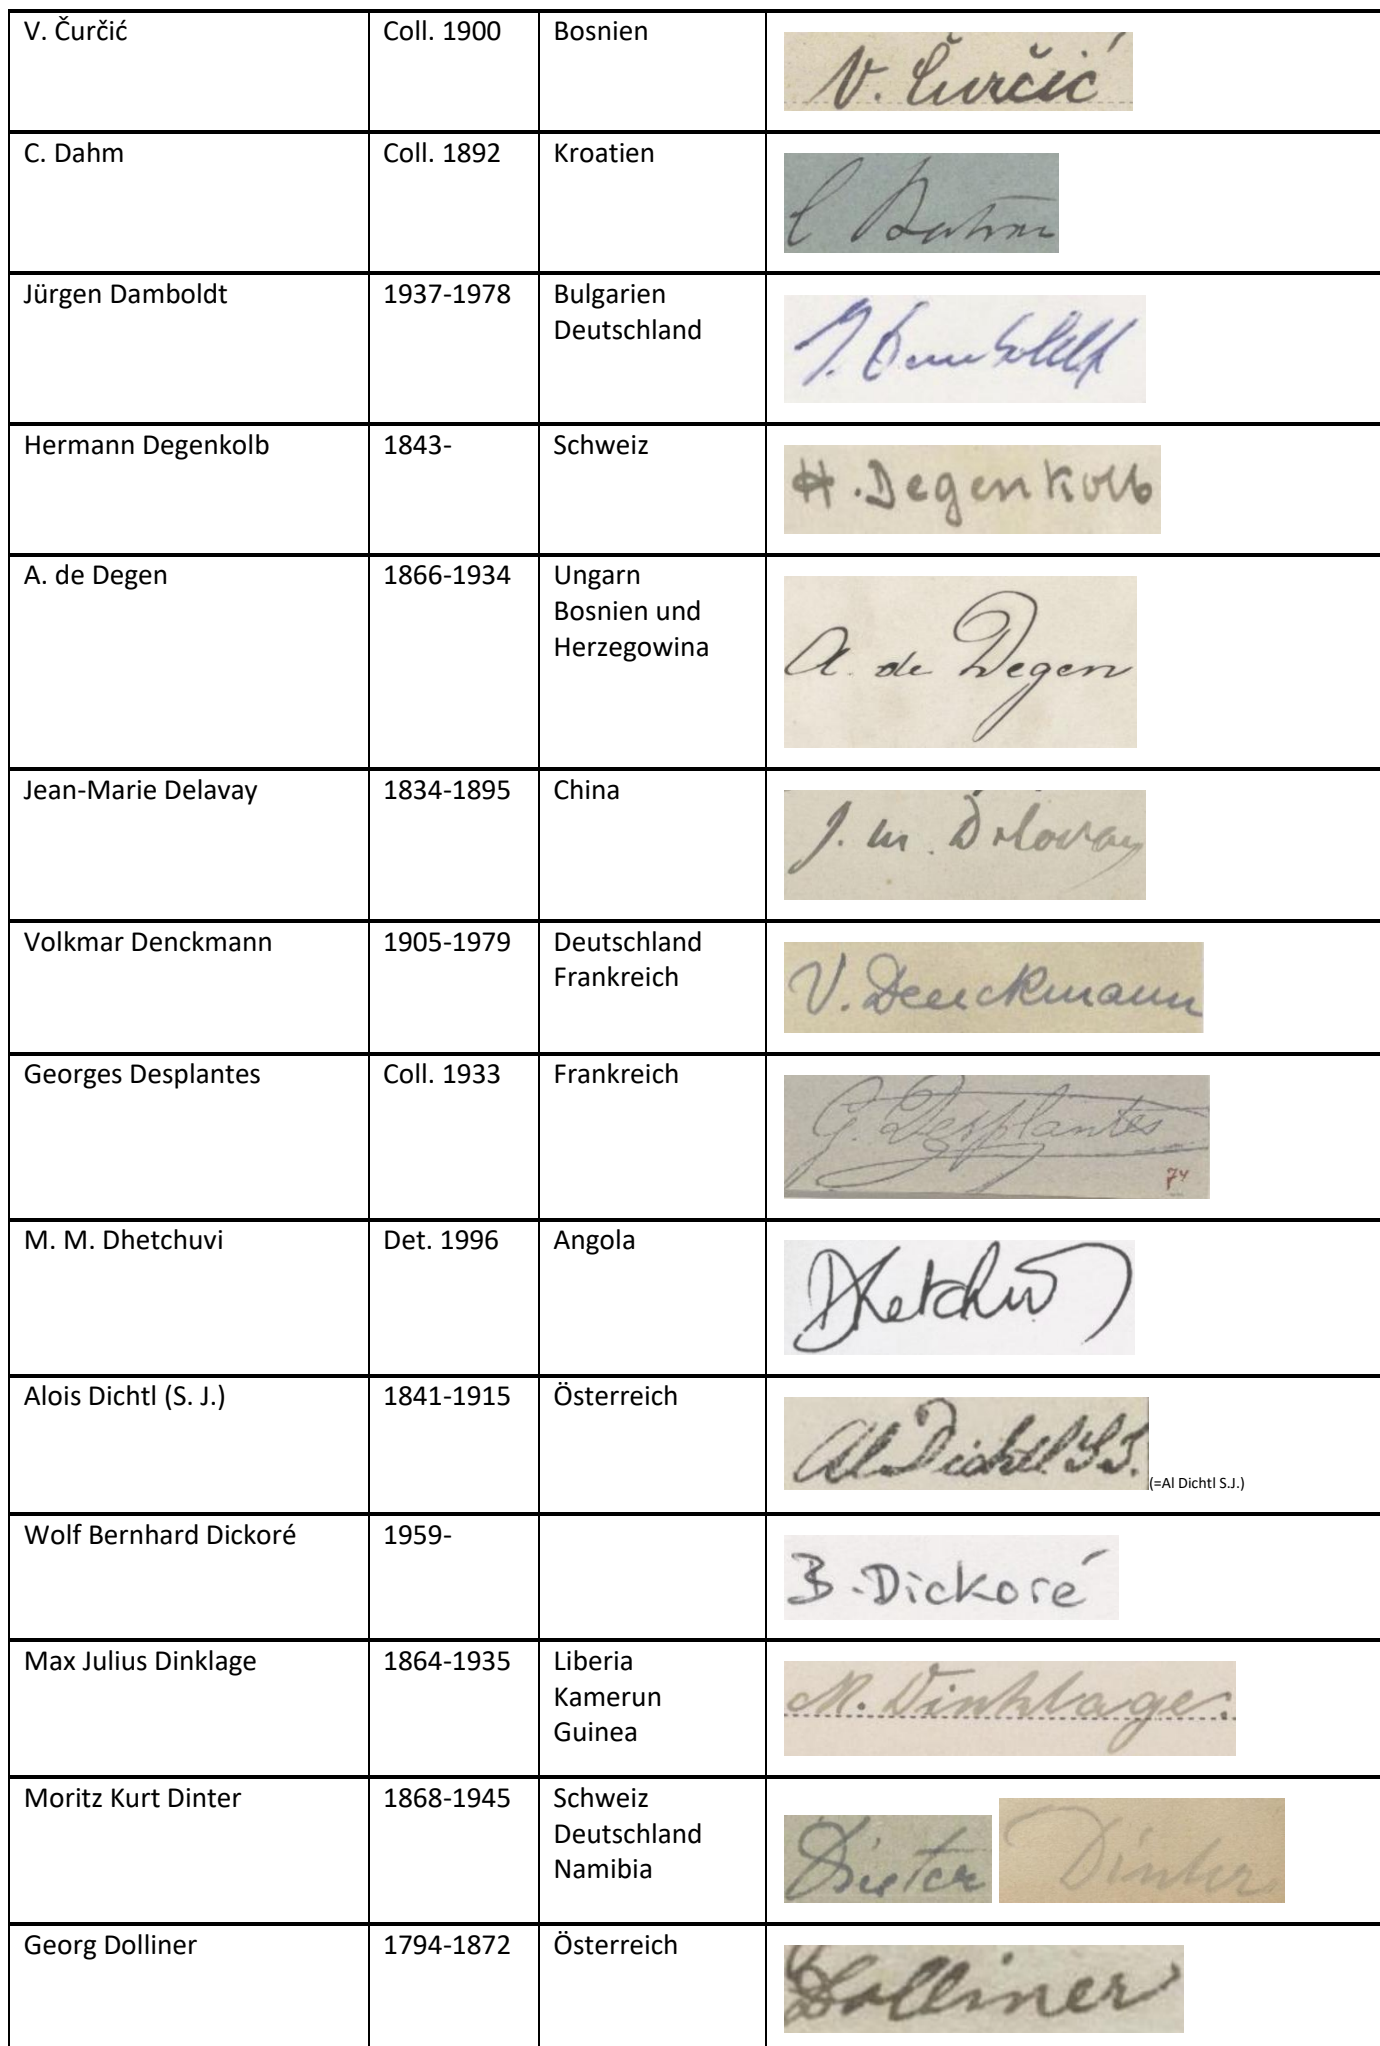 V. Čurčić Coll. 1900 Bosnien V. Čurčić
C. Dahm Coll. 1892 Kroatien C Dahm
Jürgen Damboldt 1937-1978 Bulgarien J. Damboldt
Deutschland
Hermann Degenkolb 1843- Schweiz H. Degenkolb
A. de Degen 1866-1934 Ungarn A. de Degen
Bosnien und
Herzegowina
Jean-Marie Delavay 1834-1895 China J. M. Delavay
Volkmar Denckmann 1905-1979 Deutschland V. Denckmann
Frankreich
Georges Desplantes Coll. 1933 Frankreich G. Desplantes
74
M. M. Dhetchuvi Det. 1996 Angola Dhetchuvi
Alois Dichtl (S. J.) 1841-1915 Österreich Al Dichtl S.J. (=Al Dichtl S.J.)
Wolf Bernhard Dickoré 1959- B. Dickoré
Max Julius Dinklage 1864-1935 Liberia M. Dinklage.
Kamerun
Guinea
Moritz Kurt Dinter 1868-1945 Schweiz Dinter Dinter
Deutschland
Namibia
Georg Dolliner 1794-1872 Österreich Dolliner